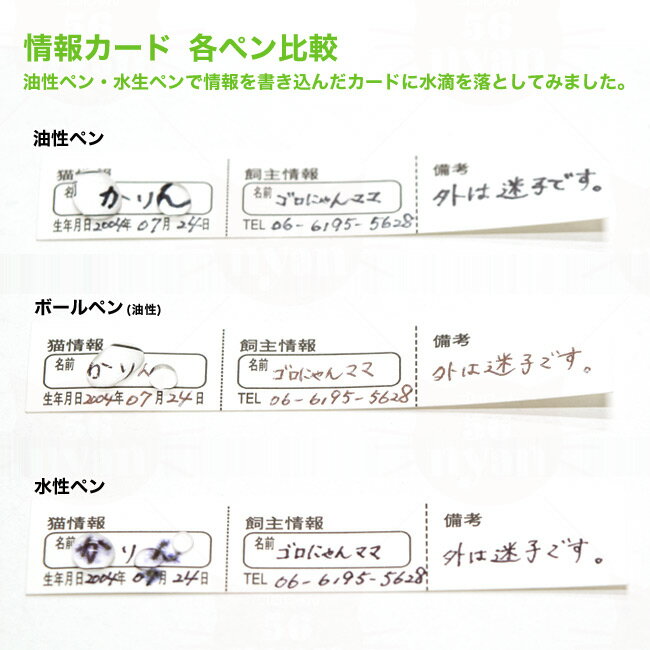 情報カード 各ペン比較
油性ペン・水生ペンで情報を書き込んだカードに水滴を落としてみました。
油性ペン
猫情報
名 かりん
生年月日2004年 07月 24日
飼主情報
名前 ゴロにゃんママ
TEL 06-6195-5628
備考
外は迷子です。
ボールペン (油性)
猫情報
名前 かりん
生年月日2004年 07月 24日
飼主情報
名前 ゴロにゃんママ
TEL 06-6195-5628
備考
外は迷子です。
水性ペン
猫情報
名前 かりん
生年月日2004年 07月 24日
飼主情報
名前 ゴロにゃんママ
TEL 06-6195-5628
備考
外は迷子です。